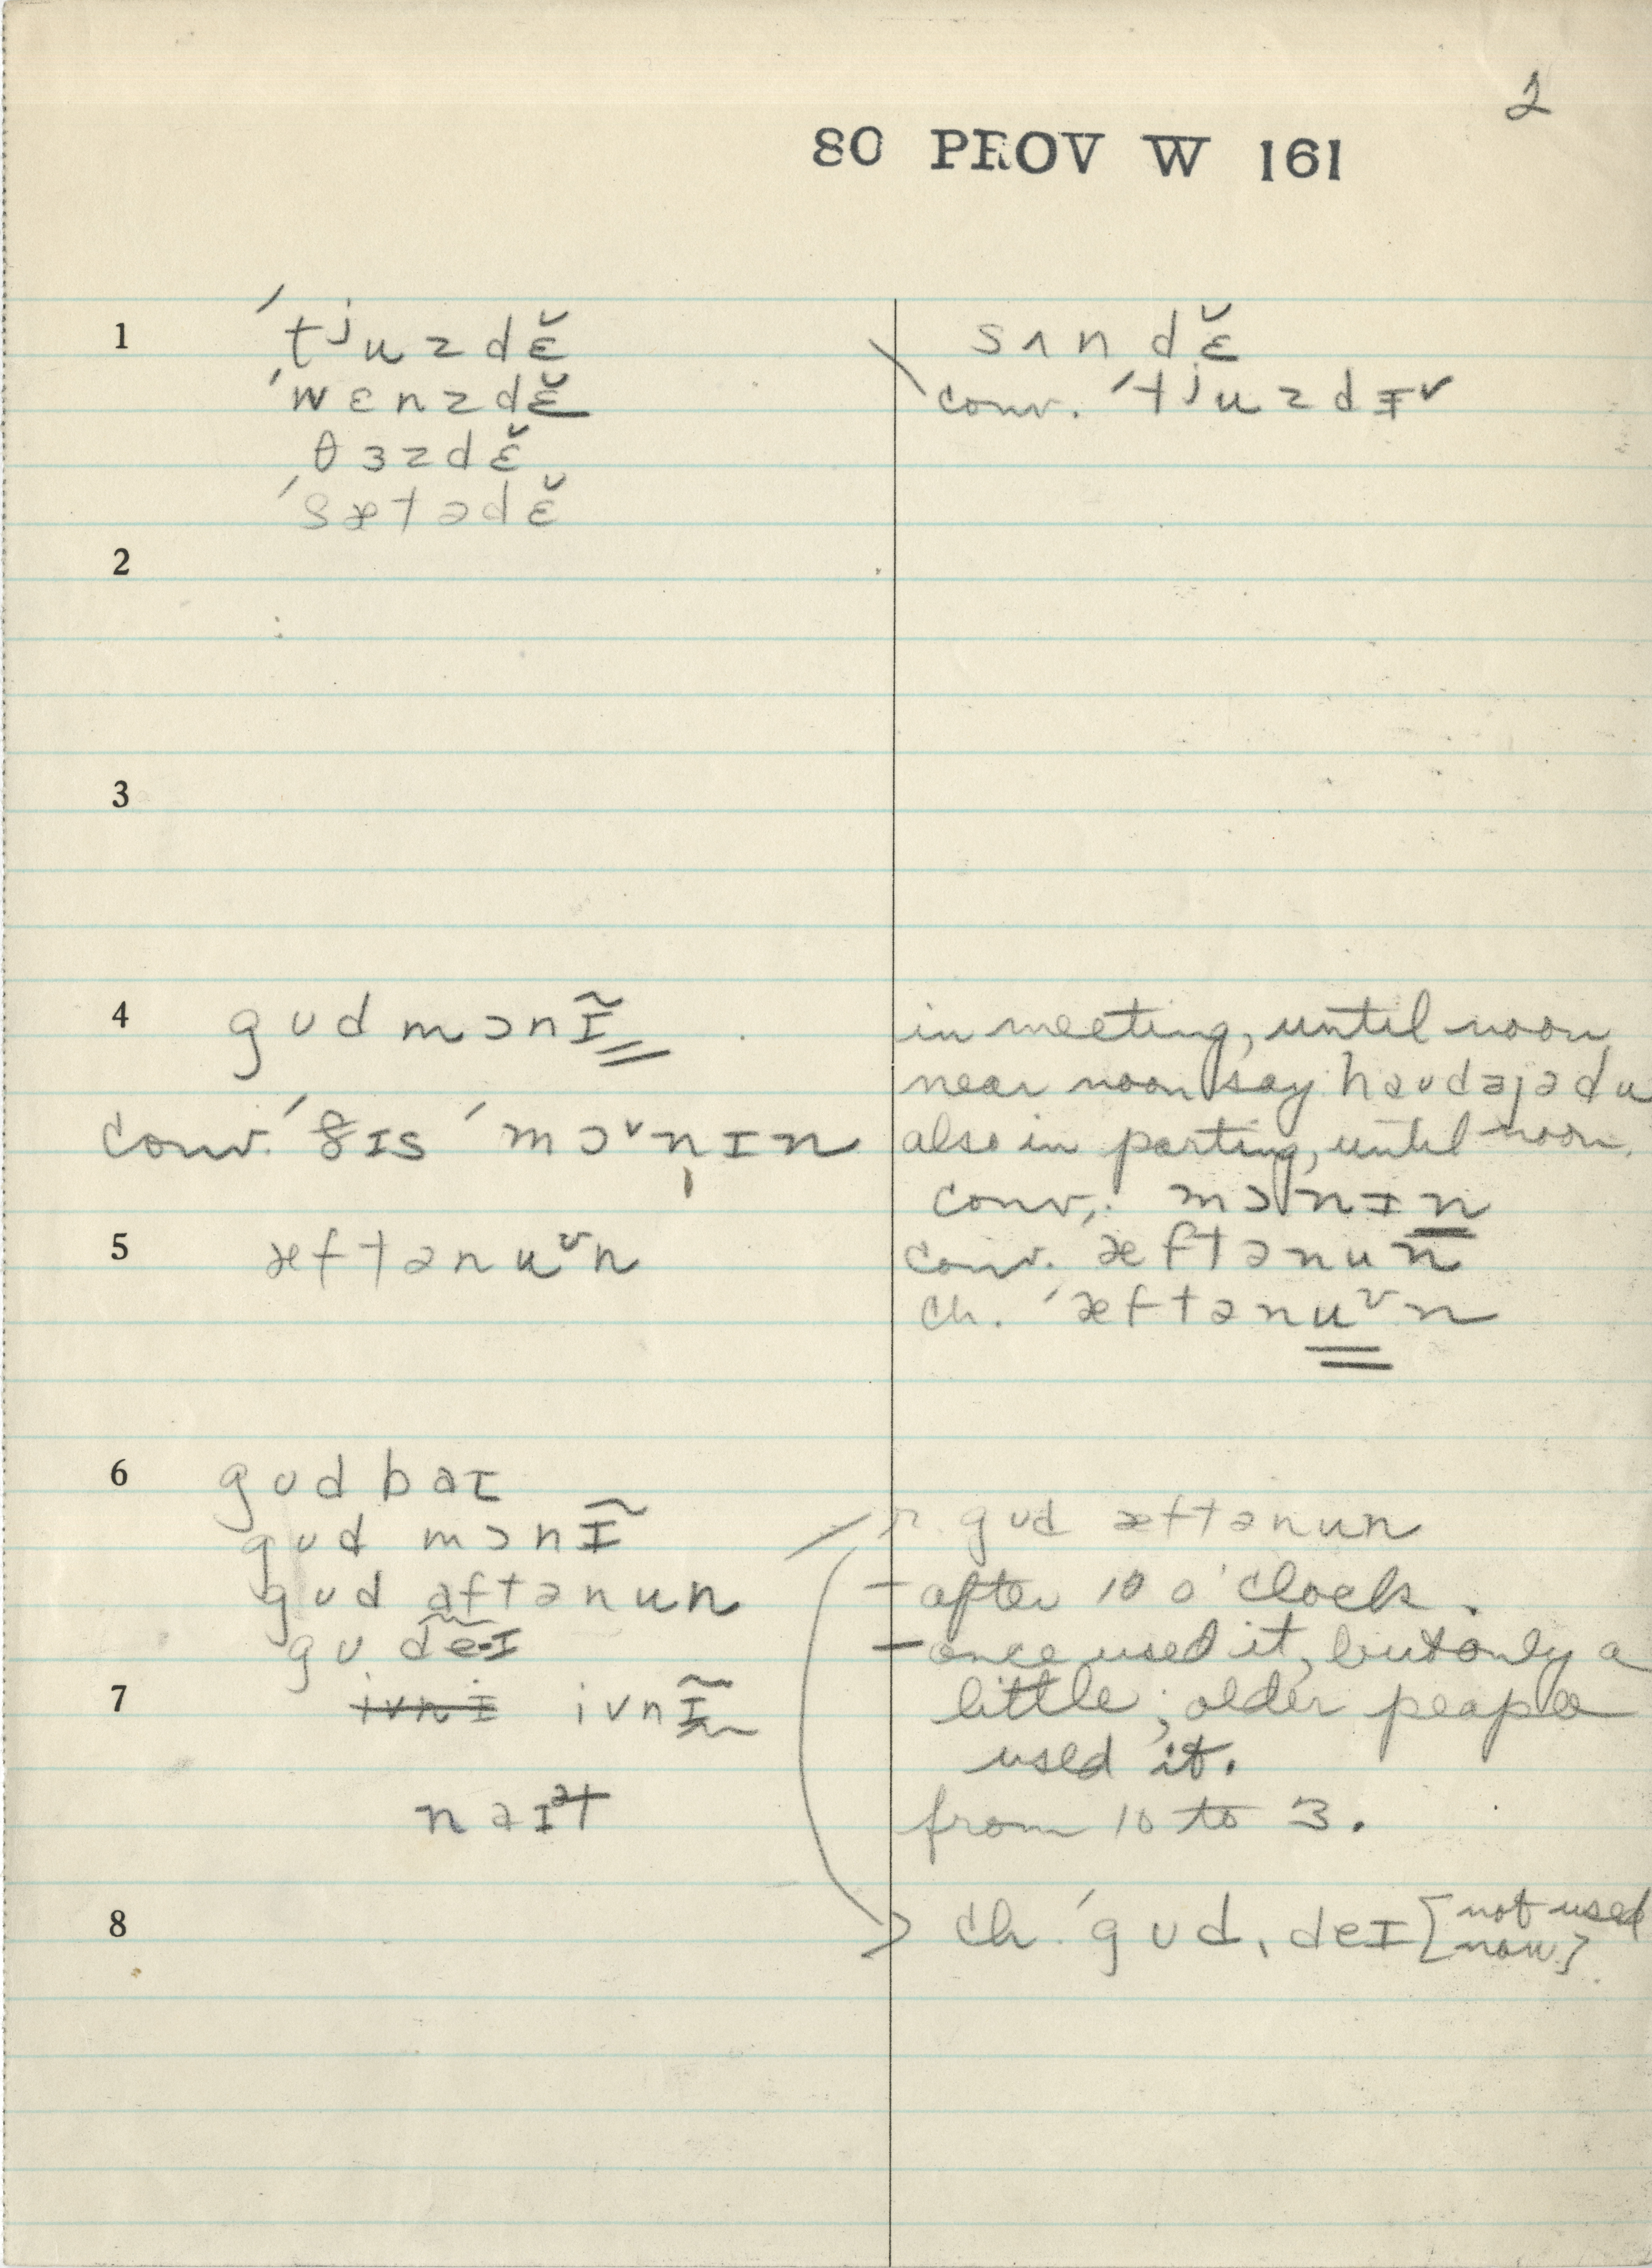 2
80 PROV W 161
1 ˈtʲuzdɛ̆ sʌndɛ̆
ˈwɛnzdɛ̆ conv. ˈtʲuzdɪ˅
θɜzdɛ̆
ˈsætədɛ̆
2
3
4 gʊd mɔnɪ̃ in meeting, until noon
near noon say haʊdəjədu
conv. ˈðɪs ˈmɔ˅n̩ɪn also in parting, until noon.
conv. mɔ˅nɪn
5 æftənu˅n conv. æftənun
ch. ˈæftənu˅n
6 gʊd baɪ
gʊd mɔnɪ̃ r. gʊd æftənun
gʊd aftənun – after 10 o'clock.
gʊ de·ɪ – once used it, but only a
7 ivnɪ ivnɪ̃ little; older people
used it.
naɪᵊt from 10 to 3.
8 ch. ˈgʊdˌdeɪ [not used
now].